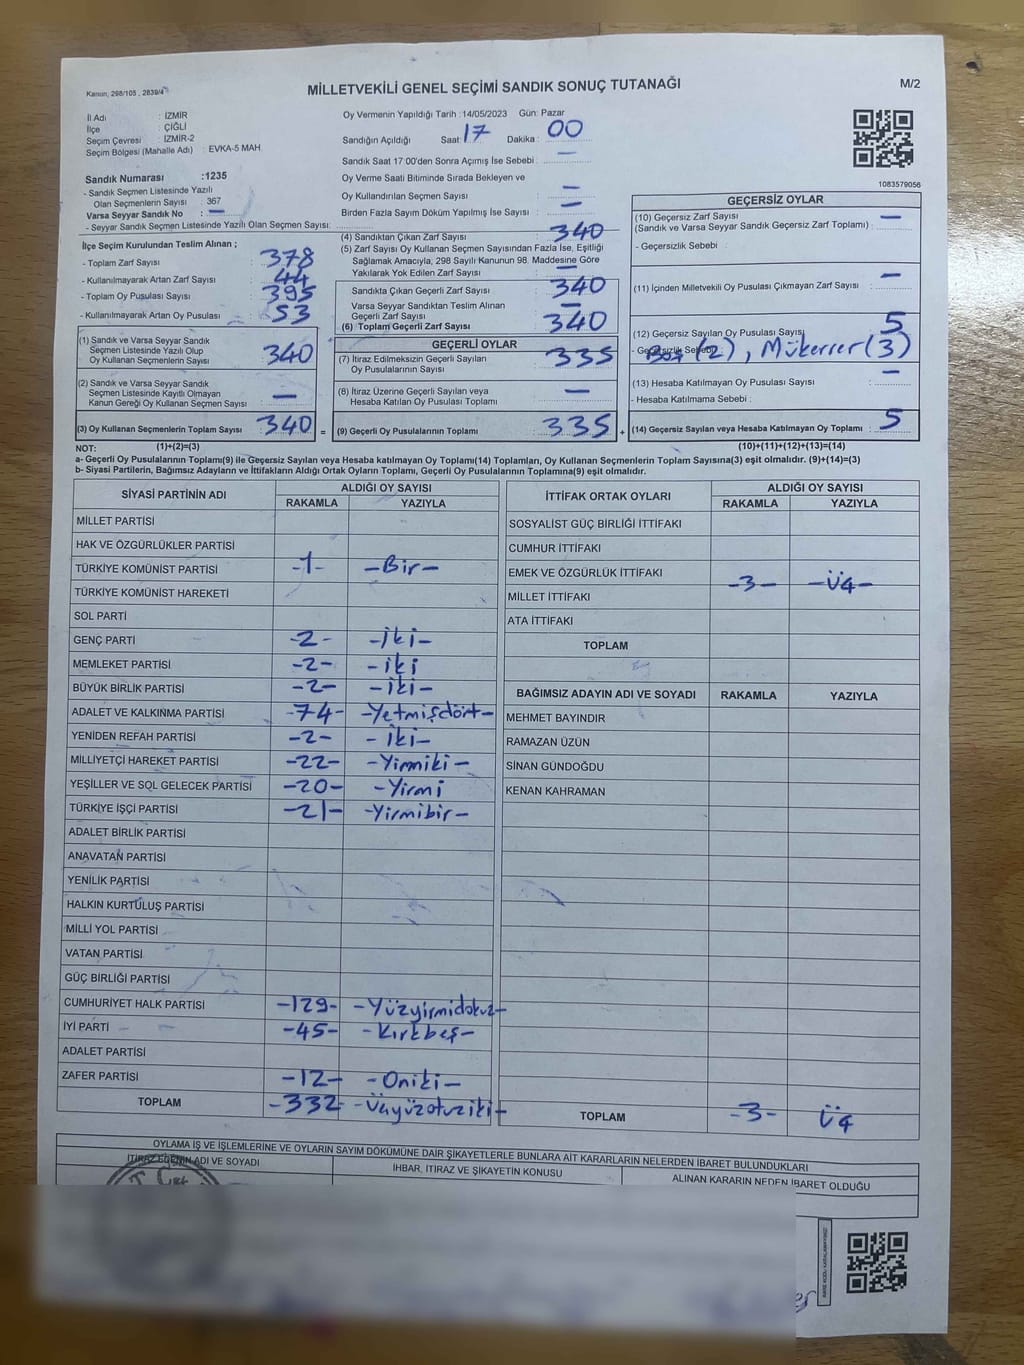 Kanun; 298/105 , 2839/4
MİLLETVEKİLİ GENEL SEÇİMİ SANDIK SONUÇ TUTANAĞI
M/2
İl Adı : İZMİR
İlçe : ÇİĞLİ
Seçim Çevresi : İZMİR-2
Seçim Bölgesi (Mahalle Adı) : EVKA-5 MAH
Oy Vermenin Yapıldığı Tarih :14/05/2023 Gün: Pazar
Sandığın Açıldığı Saat: 17 Dakika : 00
Sandık Saat 17:00'den Sonra Açımış İse Sebebi : —
Oy Verme Saati Bitiminde Sırada Bekleyen ve
Oy Kullandırılan Seçmen Sayısı —
Birden Fazla Sayım Döküm Yapılmış İse Sayısı —
1083579056
Sandık Numarası :1235
- Sandık Seçmen Listesinde Yazılı
Olan Seçmenlerin Sayısı : 367
Varsa Seyyar Sandık No : —
- Seyyar Sandık Seçmen Listesinde Yazılı Olan Seçmen Sayısı:
İlçe Seçim Kurulundan Teslim Alınan ;
- Toplam Zarf Sayısı : 378
- Kullanılmayarak Artan Zarf Sayısı : 44
- Toplam Oy Pusulası Sayısı : 395
- Kullanılmayarak Artan Oy Pusulası : 53
(1) Sandık ve Varsa Seyyar Sandık
Seçmen Listesinde Yazılı Olup
Oy Kullanan Seçmenlerin Sayısı 340
(2) Sandık ve Varsa Seyyar Sandık
Seçmen Listesinde Kayıtlı Olmayan
Kanun Gereği Oy Kullanan Seçmen Sayısı —
(3) Oy Kullanan Seçmenlerin Toplam Sayısı 340 =
(4) Sandıktan Çıkan Zarf Sayısı 340
(5) Zarf Sayısı Oy Kullanan Seçmen Sayısından Fazla İse, Eşitliği
Sağlamak Amacıyla, 298 Sayılı Kanunun 98. Maddesine Göre
Yakılarak Yok Edilen Zarf Sayısı : —
Sandıkta Çıkan Geçerli Zarf Sayısı 340
Varsa Seyyar Sandıktan Teslim Alınan
Geçerli Zarf Sayısı —
(6) Toplam Geçerli Zarf Sayısı 340
GEÇERLİ OYLAR
(7) İtiraz Edilmeksizin Geçerli Sayılan
Oy Pusulalarının Sayısı 335
(8) İtiraz Üzerine Geçerli Sayılan veya
Hesaba Katılan Oy Pusulası Toplamı —
(9) Geçerli Oy Pusulalarının Toplamı 335 +
GEÇERSİZ OYLAR
(10) Geçersiz Zarf Sayısı —
(Sandık ve Varsa Seyyar Sandık Geçersiz Zarf Toplamı) :
- Geçersizlik Sebebi :
(11) İçinden Milletvekili Oy Pusulası Çıkmayan Zarf Sayısı : —
(12) Geçersiz Sayılan Oy Pusulası Sayısı 5
- Geçersizlik Sebebi Boş (2), Mükerrer (3)
(13) Hesaba Katılmayan Oy Pusulası Sayısı : —
- Hesaba Katılmama Sebebi :
(14) Geçersiz Sayılan veya Hesaba Katılmayan Oy Toplamı : 5
NOT: (1)+(2)=(3) (10)+(11)+(12)+(13)=(14)
a- Geçerli Oy Pusulalarının Toplamı(9) ile Geçersiz Sayılan veya Hesaba katılmayan Oy Toplamı(14) Toplamları, Oy Kullanan Seçmenlerin Toplam Sayısına(3) eşit olmalıdır. (9)+(14)=(3)
b- Siyasi Partilerin, Bağımsız Adayların ve İttifakların Aldığı Ortak Oyların Toplamı, Geçerli Oy Pusulalarının Toplamına(9) eşit olmalıdır.
SİYASİ PARTİNİN ADI ALDIĞI OY SAYISI
RAKAMLA YAZIYLA
MİLLET PARTİSİ
HAK VE ÖZGÜRLÜKLER PARTİSİ
TÜRKİYE KOMÜNİST PARTİSİ -1- -Bir-
TÜRKİYE KOMÜNİST HAREKETİ
SOL PARTİ
GENÇ PARTİ -2- -İki-
MEMLEKET PARTİSİ -2- -İki
BÜYÜK BİRLİK PARTİSİ -2- -İki-
ADALET VE KALKINMA PARTİSİ -74- -Yetmişdört-
YENİDEN REFAH PARTİSİ -2- -İki-
MİLLİYETÇİ HAREKET PARTİSİ -22- -Yirmiki-
YEŞİLLER VE SOL GELECEK PARTİSİ -20- -Yirmi
TÜRKİYE İŞÇİ PARTİSİ -21- -Yirmibir-
ADALET BİRLİK PARTİSİ
ANAVATAN PARTİSİ
YENİLİK PARTİSİ
HALKIN KURTULUŞ PARTİSİ
MİLLİ YOL PARTİSİ
VATAN PARTİSİ
GÜÇ BİRLİĞİ PARTİSİ
CUMHURİYET HALK PARTİSİ -129- -Yüzyirmidokuz-
İYİ PARTİ -45- -Kırkbeş-
ADALET PARTİSİ
ZAFER PARTİSİ -12- -Oniki-
TOPLAM -332- -Üçyüzotuziki-
İTTİFAK ORTAK OYLARI ALDIĞI OY SAYISI
RAKAMLA YAZIYLA
SOSYALİST GÜÇ BİRLİĞİ İTTİFAKI
CUMHUR İTTİFAKI
EMEK VE ÖZGÜRLÜK İTTİFAKI -3- -Üç-
MİLLET İTTİFAKI
ATA İTTİFAKI
TOPLAM
BAĞIMSIZ ADAYIN ADI VE SOYADI RAKAMLA YAZIYLA
MEHMET BAYINDIR
RAMAZAN ÜZÜN
SİNAN GÜNDOĞDU
KENAN KAHRAMAN
TOPLAM -3- Üç
OYLAMA İŞ VE İŞLEMLERİNE VE OYLARIN SAYIM DÖKÜMÜNE DAİR ŞİKAYETLERLE BUNLARA AİT KARARLARIN NELERDEN İBARET BULUNDUKLARI
İTİRAZ EDENİN ADI VE SOYADI
İHBAR, İTİRAZ VE ŞİKAYETİN KONUSU
ALINAN KARARIN NEDEN İBARET OLDUĞU